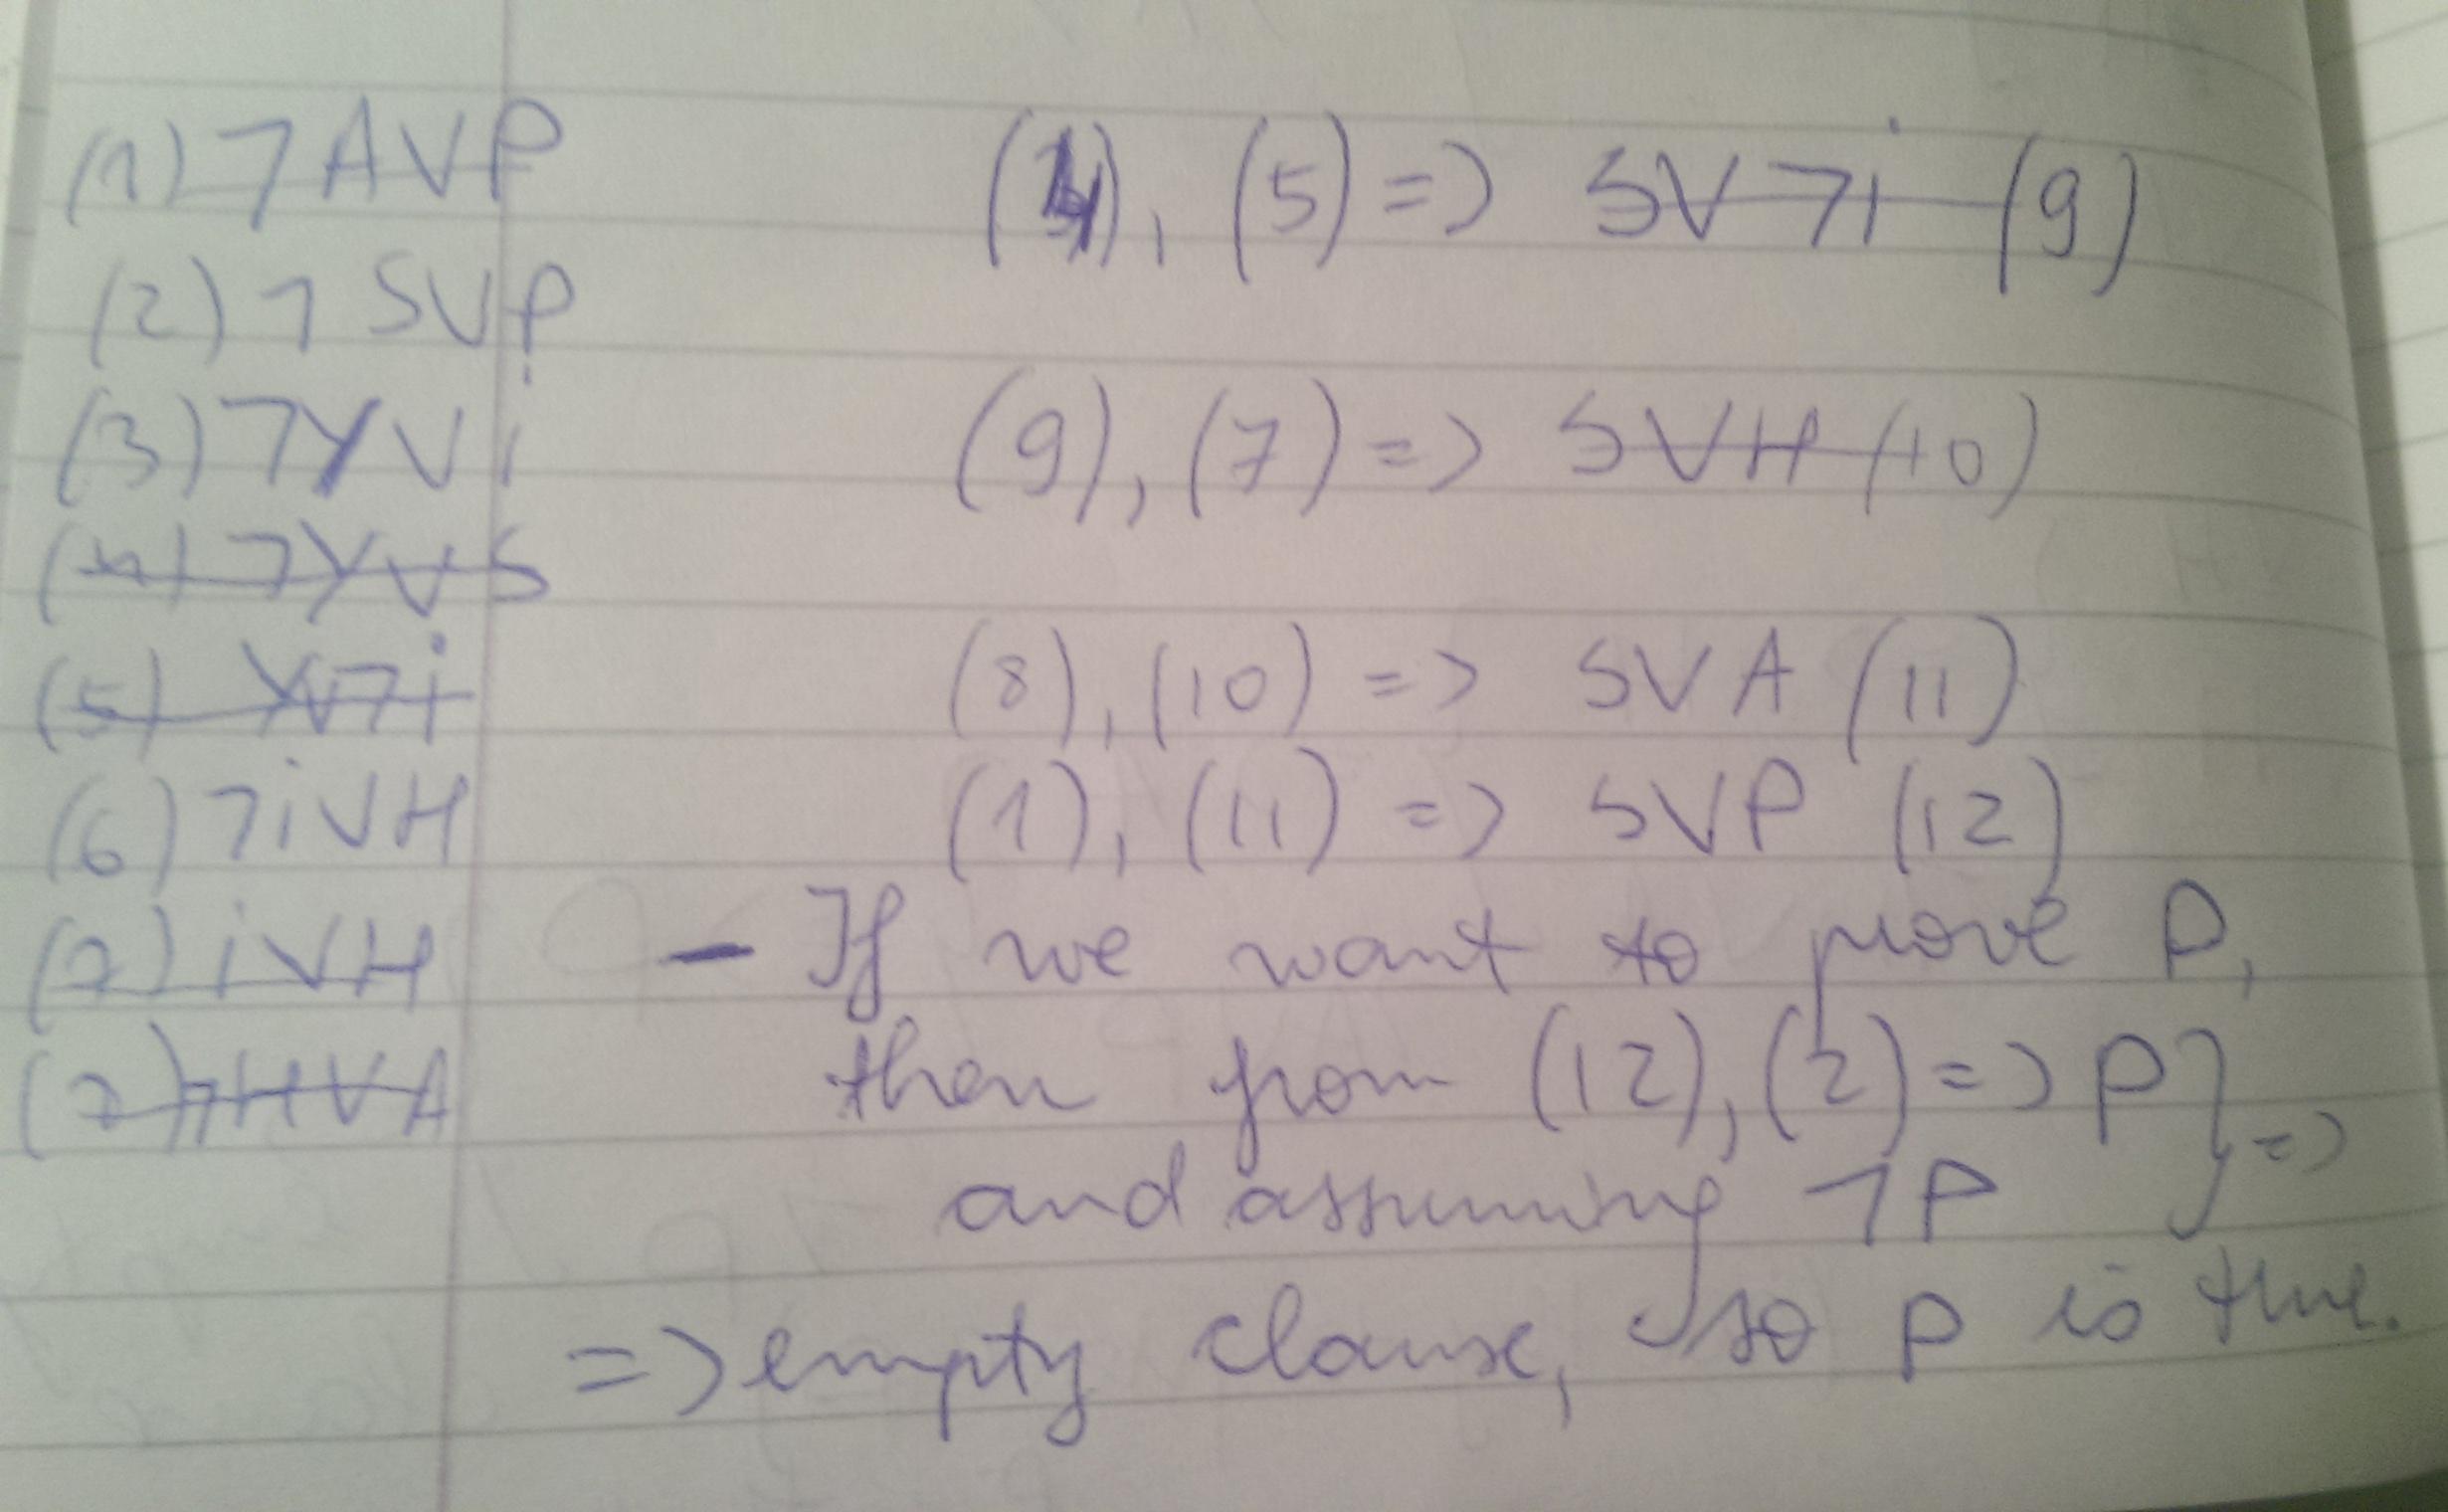 (1) ¬A∨P
(2) ¬S∨P
(3) ¬Y∨i
(4) ¬Y∨S
(5) Y∨¬i
(6) ¬i∨H
(7) i∨H
(7) ¬H∨A
(4), (5) => S∨¬i (9)
(9), (7) => S∨H (10)
(8), (10) => S∨A (11)
(1), (11) => S∨P (12)
- If we want to prove P,
then from (12), (2) => P } =>
and assuming ¬P
=> empty clause, so P is true.